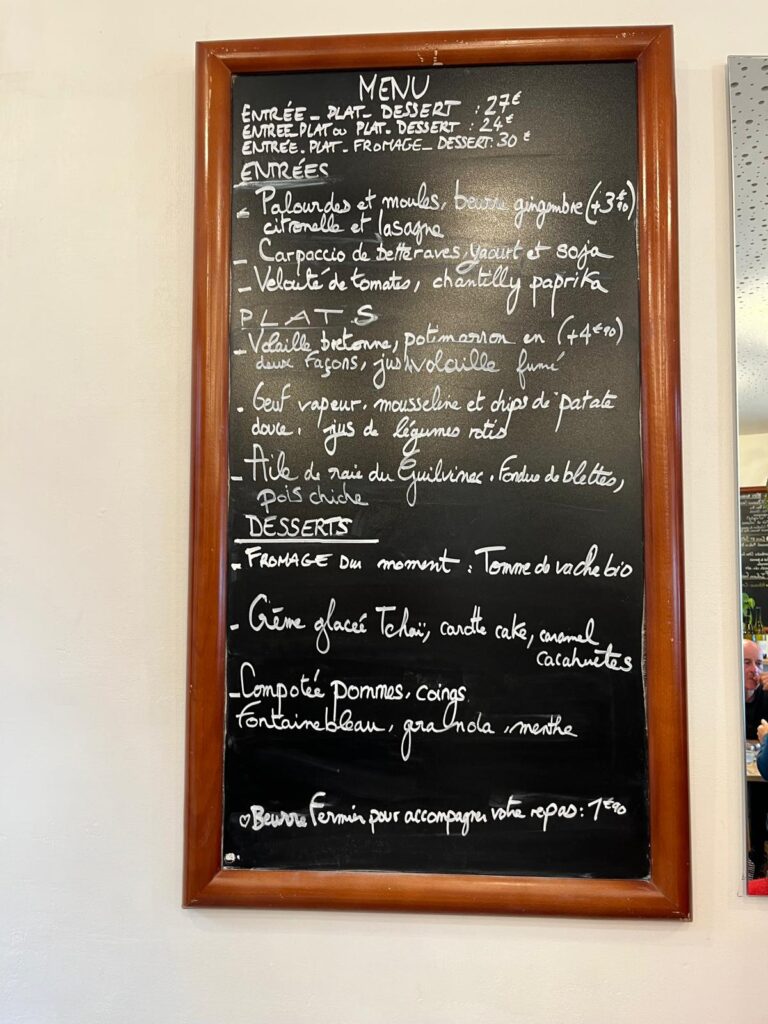 MENU
ENTRÉE_PLAT_DESSERT : 27€
ENTREE_PLAT ou PLAT_DESSERT : 24€
ENTRÉE.PLAT.FROMAGE_DESSERT: 30€
ENTRÉES
- Palourdes et moules, beurre gingembre (+3€90)
citronelle et lasagne
- Carpaccio de betteraves, yaourt et soja
- Velouté de tomates, chantilly paprika
PLATS
- Volaille bretonne, potimarron en (+4€90)
deux façons, jus volaille fumé
- Oeuf vapeur, mousseline et chips de patate
douce, jus de légumes rotis
- Aile de raie du Guilvinec, Fondue de blettes,
pois chiche
DESSERTS
- FROMAGE Du moment : Tomme de vache bio
- Crème glaceé Tchaï, carotte cake, caramel
cacahuètes
- Compotée pommes, coings
Fontainebleau, granola, menthe
♡ Beurre Fermier pour accompagner votre repas : 1€90